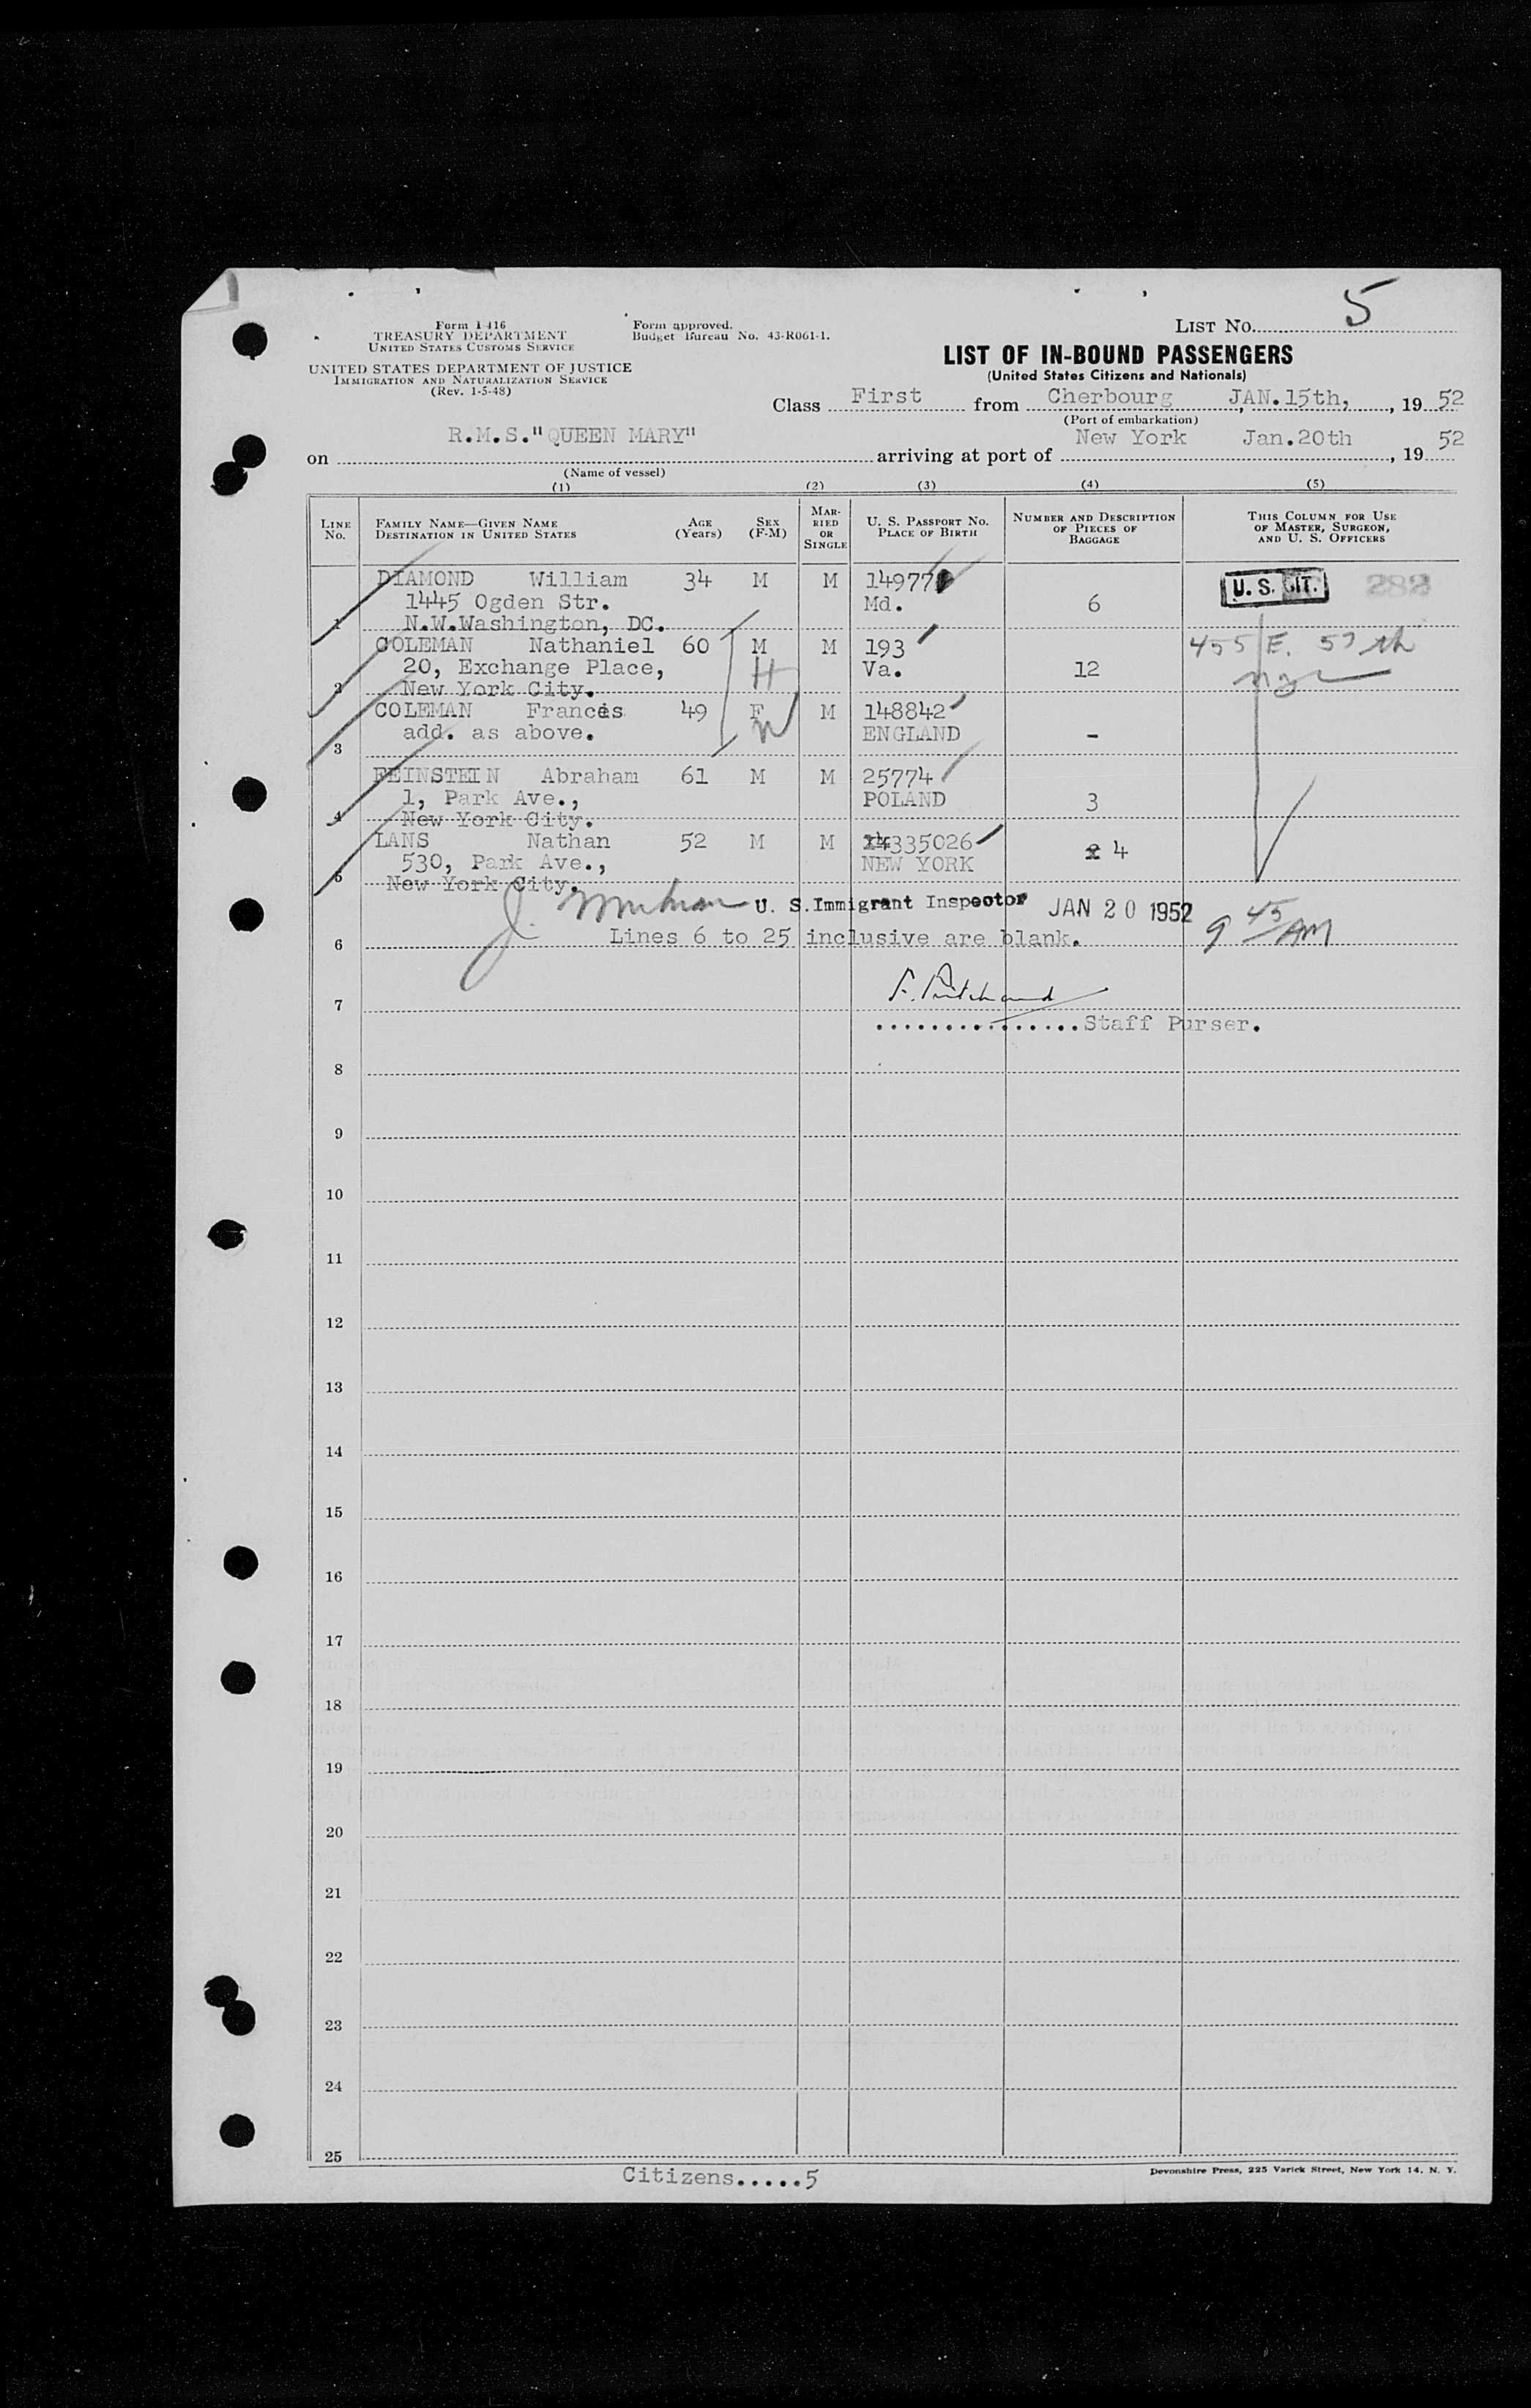 5
LIST NO.
Form I-416
TREASURY DEPARTMENT
UNITED STATES CUSTOMS SERVICE
UNITED STATES DEPARTMENT OF JUSTICE
IMMIGRATION AND NATURALIZATION SERVICE
(Rev. 1-5-48)
Form approved.
Budget Bureau No. 43-R061-1.
LIST OF IN-BOUND PASSENGERS
(United States Citizens and Nationals)
Class First from Cherbourg, JAN.15th, , 19 52
(Port of embarkation)
on R.M.S."QUEEN MARY" arriving at port of New York Jan.20th , 19 52
(Name of vessel)
(1) (2) (3) (4) (5)
LINE NO. FAMILY NAME—GIVEN NAME DESTINATION IN UNITED STATES AGE (Years) SEX (F-M) MARRIED OR SINGLE U. S. PASSPORT NO. PLACE OF BIRTH NUMBER AND DESCRIPTION OF PIECES OF BAGGAGE THIS COLUMN FOR USE OF MASTER, SURGEON, AND U. S. OFFICERS
DIAMOND William 34 M M 14977 U. S. CIT. 282
1445 Ogden Str. Md. 6
1 N.W.Washington, DC.
COLEMAN Nathaniel 60 M M 193 455 E. 57th
20, Exchange Place, H Va. 12 nyc
2 New York City.
COLEMAN Frances 49 F M 148842
add. as above. W ENGLAND -
3
FEINSTEIN Abraham 61 M M 25774
1, Park Ave., POLAND 3
4 New York City.
LANS Nathan 52 M M 335026
530, Park Ave., NEW YORK 4
5 New York City.
J. U. S. Immigrant Inspector JAN 20 1952 9 45 AM
6 Lines 6 to 25 inclusive are blank.
F. Pritchard
7
...............Staff Purser.
8
9
10
11
12
13
14
15
16
17
18
19
20
21
22
23
24
25
Citizens.....5
Devonshire Press, 225 Varick Street, New York 14, N. Y.